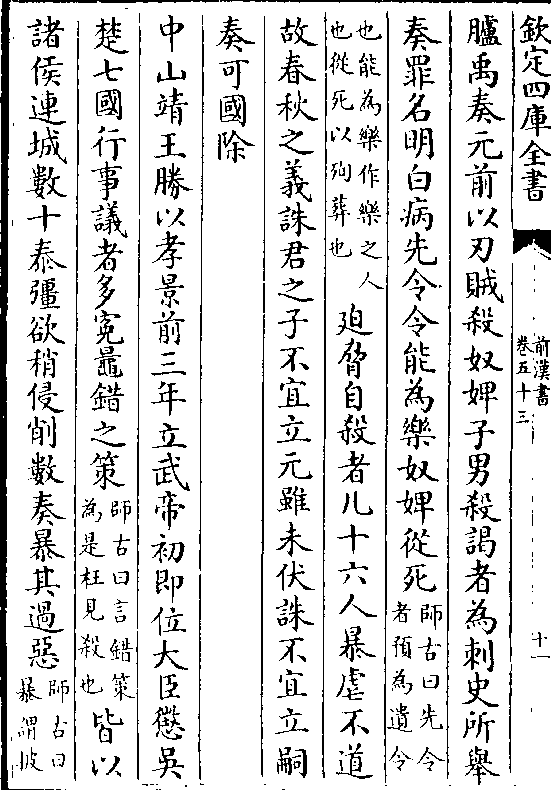 欽定四庫全書
前漢書
卷五十三
十一
臚禹奏元前以刃賊殺奴婢子男殺謁者為刺史所舉
奏罪名明白病先令令能為樂奴婢從死
師古曰先令
者預為遺令
也能為樂作樂之人
也從死以殉葬也
迫脅自殺者凡十六人暴虐不道
故春秋之義誅君之子不宜立元雖未伏誅不宜立嗣
奏可國除
中山靖王勝以孝景前三年立武帝初即位大臣懲吳
楚七國行事議者多寃鼂錯之策
師古曰言錯策
為是枉見殺也
皆以
諸侯連城數十泰彊欲稍侵削數奏暴其過惡
師古曰
暴謂披